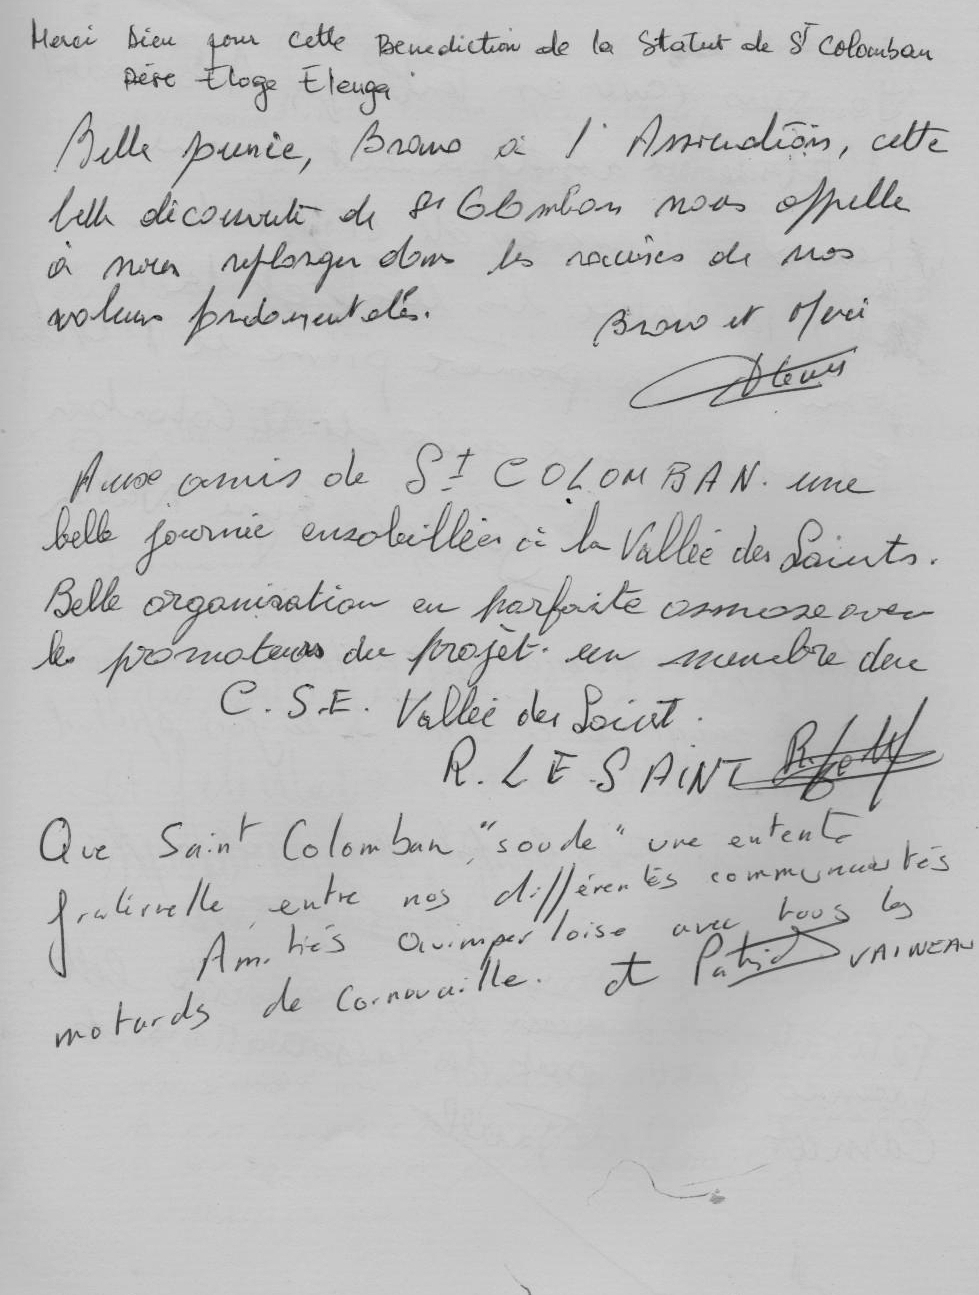 Merci Dieu pour cette Benediction de la Statut de St Colomban
Père Eloge Elenga
Belle journée, Bravo à l'Association, cette
belle découverte de St Colomban nous appelle
à nous replonger dans les racines de nos
valeurs fondamentales.
Bravo et Merci
Aux amis de St COLOMBAN. une
belle journée ensoleillée à la Vallée des Saints.
Belle organisation en parfaite osmose avec
les promoteurs du projet. un membre du
C.S.E. Vallée des Saint.
R. LE SAINT
Que Saint Colomban, "soude" une entente
fraternelle entre nos différentes communautés
Amitiés Quimperloise avec tous les
motards de Cornouaille. et Patrick VAINEAU